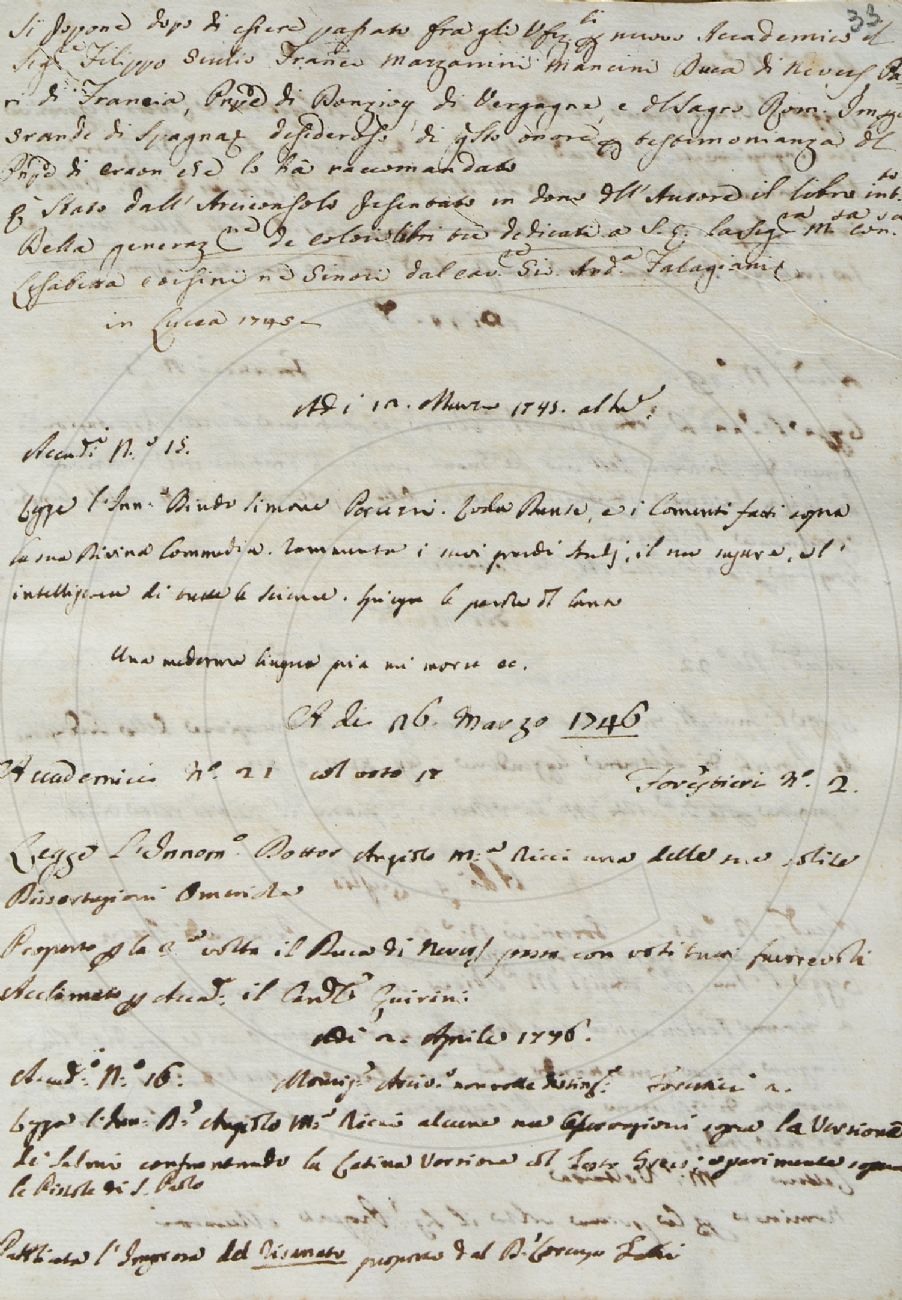 33
Si propone dopo di essere passato fra gli Ufiz.li per nuovo Accademico il
Sig.e Filippo Giulio Franc.o Mazzarini Mancini Duca di Nevers, Pa-
ri di Francia, Prpe di di Vergagne, e del Sagro Rom. Imp.o
Grande di Spagna, desideroso di qsto onore per testimonianza del
Prpe di Craon che lo ha raccomandato
È stato dall' Arciconsolo presentato in dono dell' Autore il libro int.to
Della generaz.ne de colori libri tre dedicati a S. E. la Sig.ra M.sa Con.sa
Elisabetta ne Ginori dal cav.re Gio. And.a
in Lucca 1745
Adi 12. Marzo 1745. ab Inc.e
Accad.i N.o 15.
Legge l'Inn.o Bindo Simone Peruzzi. Loda Dante, e i Comenti fatti sopra
la sua Divina Commedia. Rammenta i suoi pregi il suo sapere, e l'
intelligenza di tutte le scienze. Spiega le parole del Canto
Una medesma lingua pria mi morse ec.
A di 26. Marzo 1746
Accademici N.o 21 col voto 12 Forestieri N.o 2.
Legge L'Innom.o Dottor Angiolo M.a Ricci una delle sue solite
Dissertazioni Omeriche
Proposto per la 2.a volta il Duca di Nevers passa con voti tutti favorevoli
Acclamato per Accad.o il Card.le Quirini
Adi 2. Aprile 1746.
Accad.i N.o 16. Monsig.e Arciv.o Forestieri 2.
Legge l'Inn.o D.r Angiolo M.a Ricci alcune sue Osservazioni sopra la Versione
di Salvini confrontando la Latina Versione col Testo Greco; e parimente sopra
le Pistole di S. Paolo
Pubblicata l'Impresa del proposta dal D.r Lorenzo